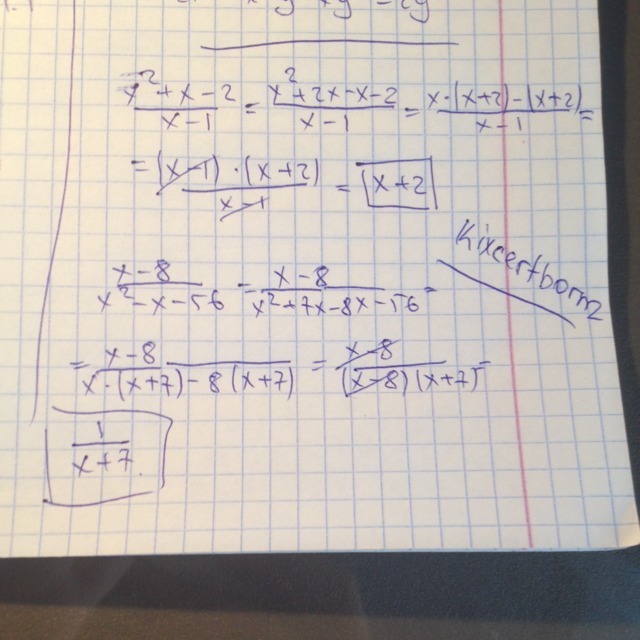 x² + x - 2 / x - 1 = x² + 2x - x - 2 / x - 1 = x · (x+2) - (x+2) / x - 1 =
= (x-1) · (x+2) / x-1 = x+2
Kixcertborn2
x - 8 / x² - x - 56 = x - 8 / x² + 7x - 8x - 56 =
= x - 8 / x · (x+7) - 8(x+7) = x-8 / (x-8)(x+7) =
1 / x+7